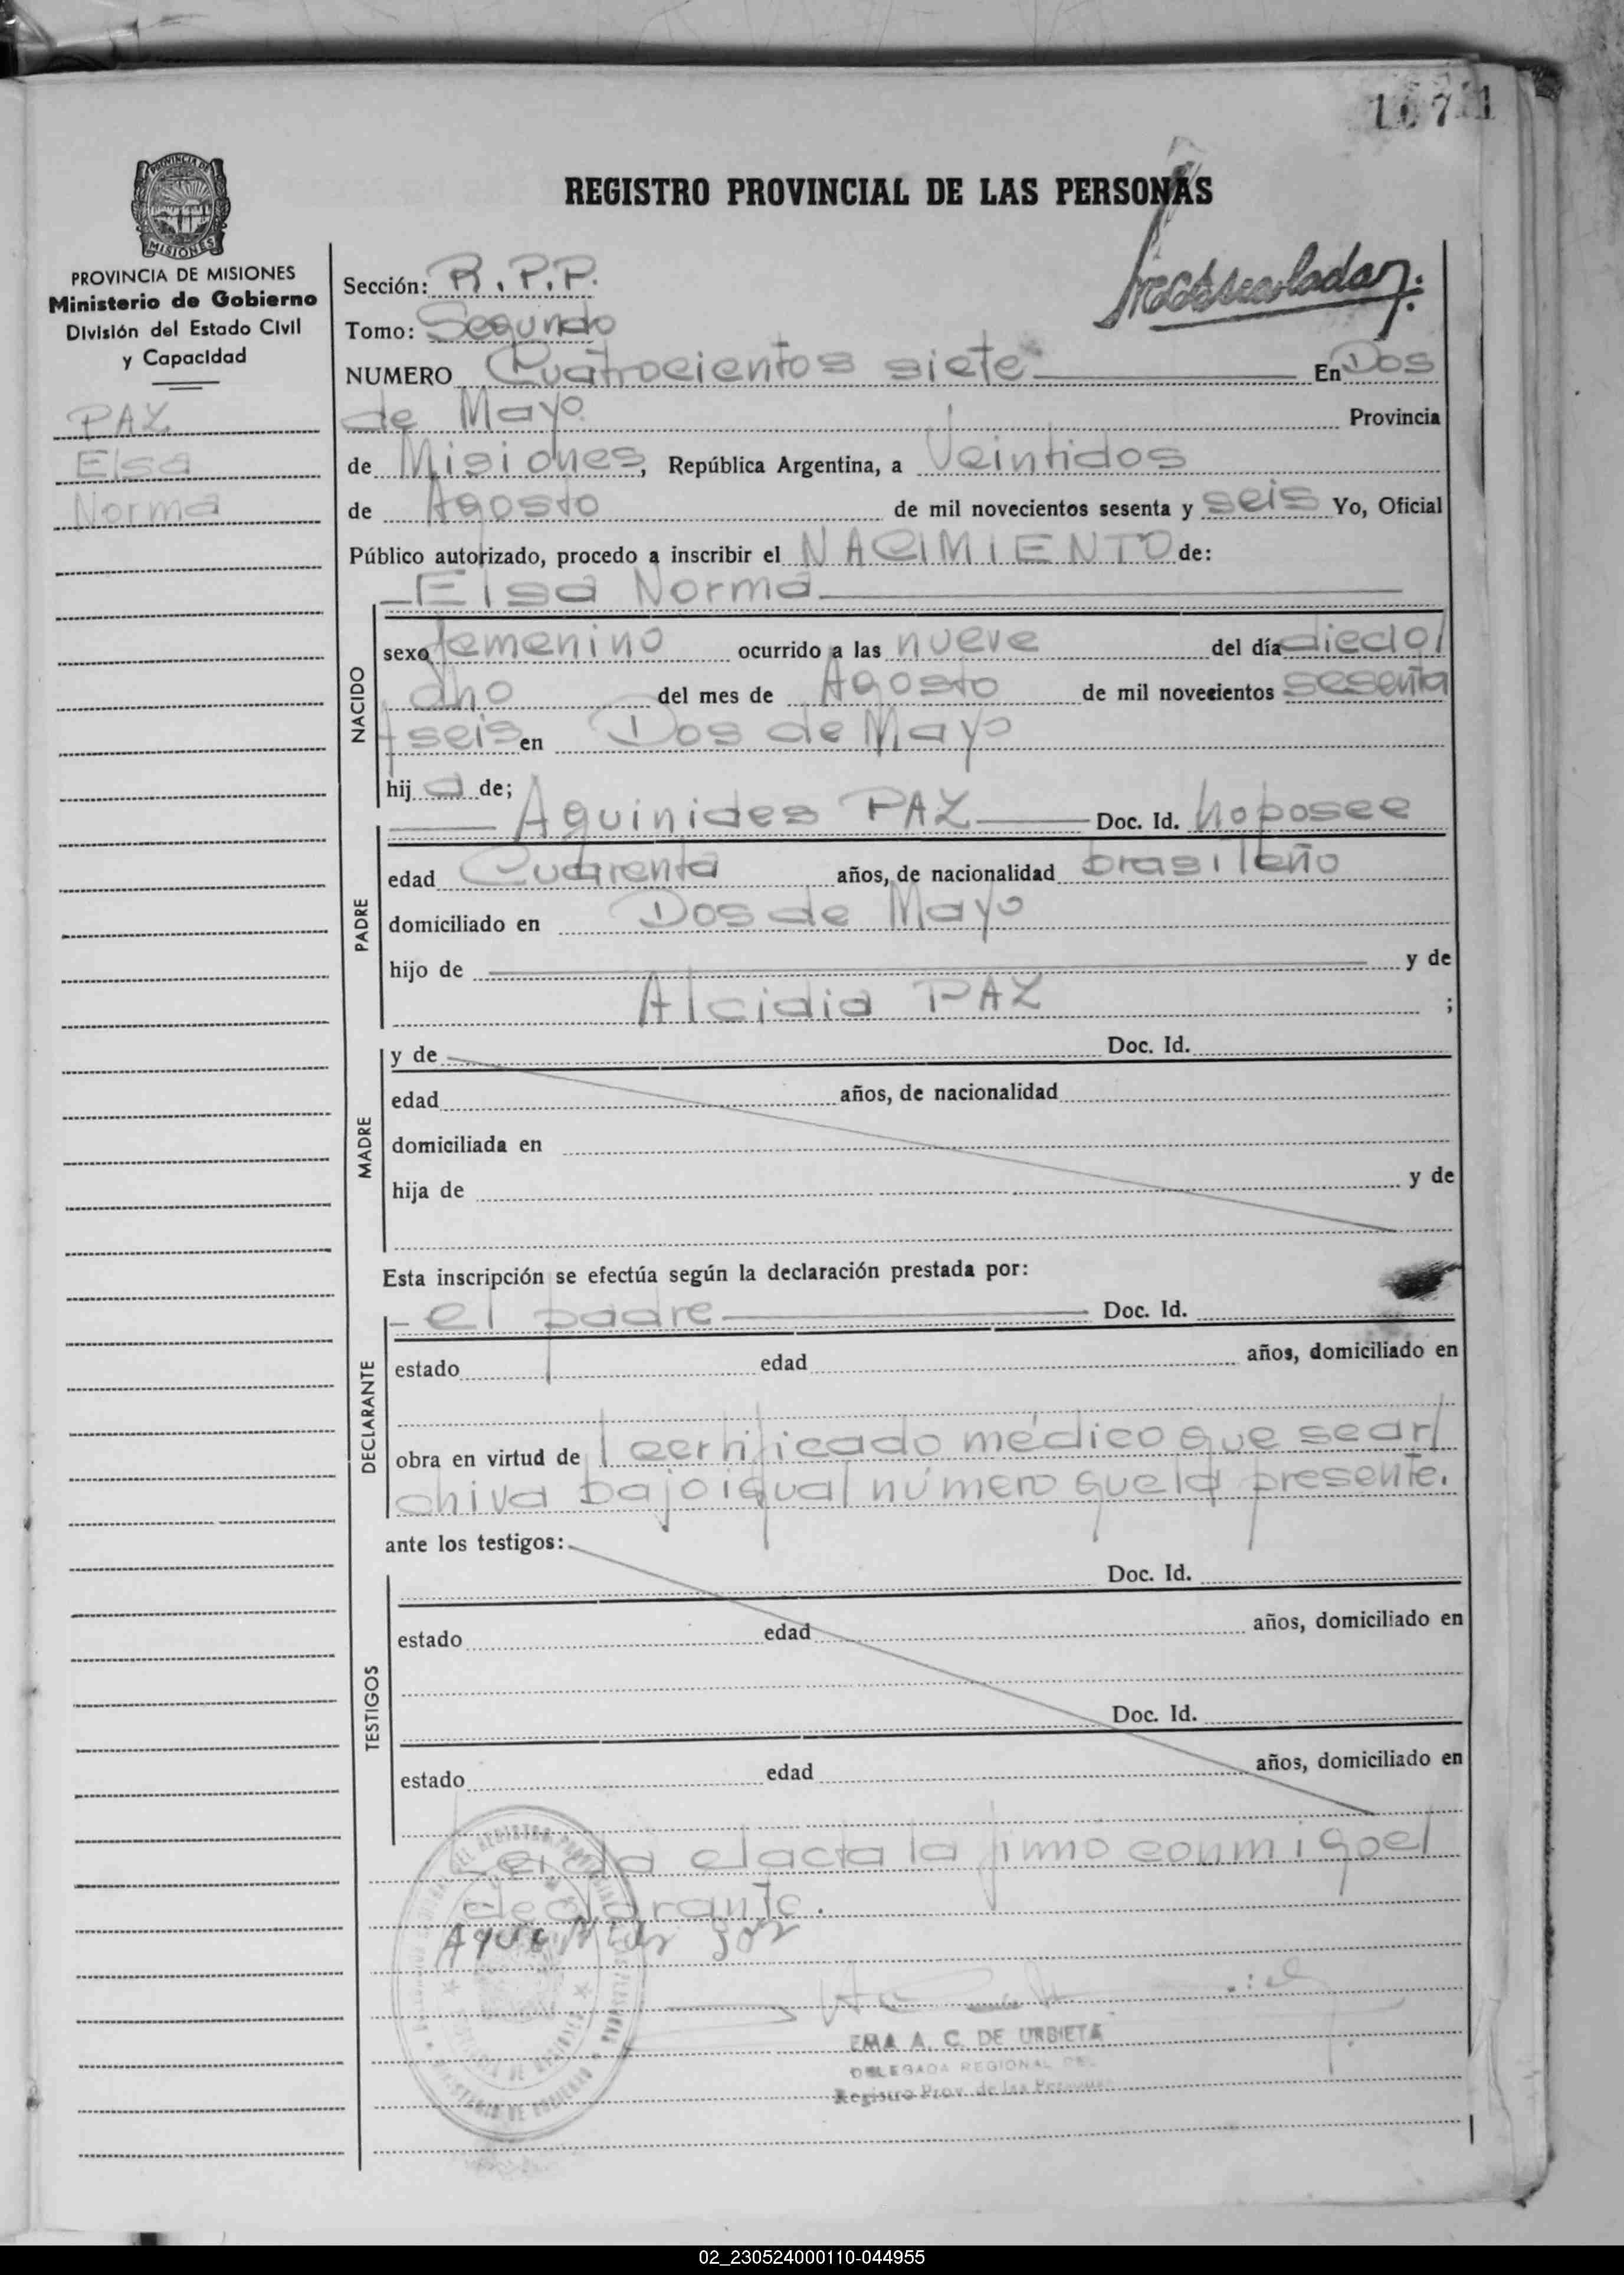 1671
REGISTRO PROVINCIAL DE LAS PERSONAS
PROVINCIA DE MISIONES
Ministerio de Gobierno
División del Estado Civil
y Capacidad
PAZ
Elsa
Norma
Sección: R.P.P.
Tomo: Segundo
NUMERO Cuatrocientos siete En Dos
de Mayo Provincia
de Misiones, República Argentina, a Veintidos
de Agosto de mil novecientos sesenta y seis Yo, Oficial
Público autorizado, procedo a inscribir el NACIMIENTO de:
Elsa Norma
NACIDO
sexo femenino ocurrido a las nueve del día diecio/
cho del mes de Agosto de mil novecientos sesenta
y seis en Dos de Mayo
hij a de;
PADRE
Aquinides PAZ Doc. Id. no posee
edad Cuarenta años, de nacionalidad brasileño
domiciliado en Dos de Mayo
hijo de y de
Alcidia PAZ ;
MADRE
y de Doc. Id.
edad años, de nacionalidad
domiciliada en
hija de y de
Esta inscripción se efectúa según la declaración prestada por:
DECLARANTE
el padre Doc. Id.
estado edad años, domiciliado en
obra en virtud de l certificado médico que se ar/
chiva bajo igual número que la presente.
ante los testigos:
TESTIGOS
Doc. Id.
estado edad años, domiciliado en
Doc. Id.
estado edad años, domiciliado en
Leida el acta la firmó conmigo el
declarante.
EMA A. C. DE URBIETA
DELEGADA REGIONAL DEL
Registro Prov. de las Personas
02_230524000110-044955